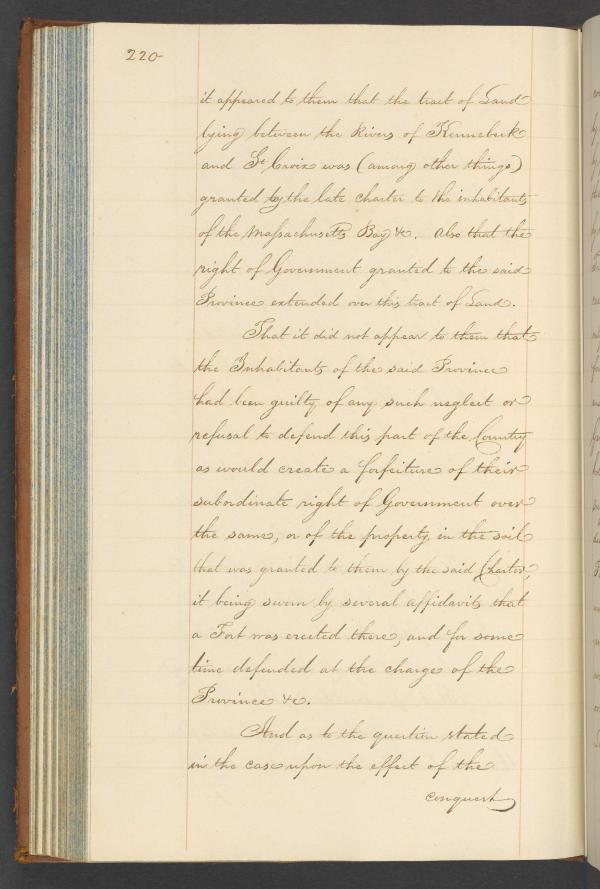 220
it appeared to them that the tract of Land
lying between the Rivers of Kennebeck
and St Croix was (among other things)
granted by the late charter to the inhabitants
of the Massachusetts Bay &c. Also that the
right of Government granted to the said
Province extended over this tract of Land.
That it did not appear to them that
the Inhabitants of the said Province
had been guilty of any such neglect or
refusal to defend this part of the Country
as would create a forfeiture of their
subordinate right of Government over
the same, or of the property in the soil
that was granted to them by the said Charter,
it being sworn by several affidavits that
a Fort was erected there, and for some
time defended at the charge of the
Province &c.
And as to the question stated
in the case upon the effect of the
conquest